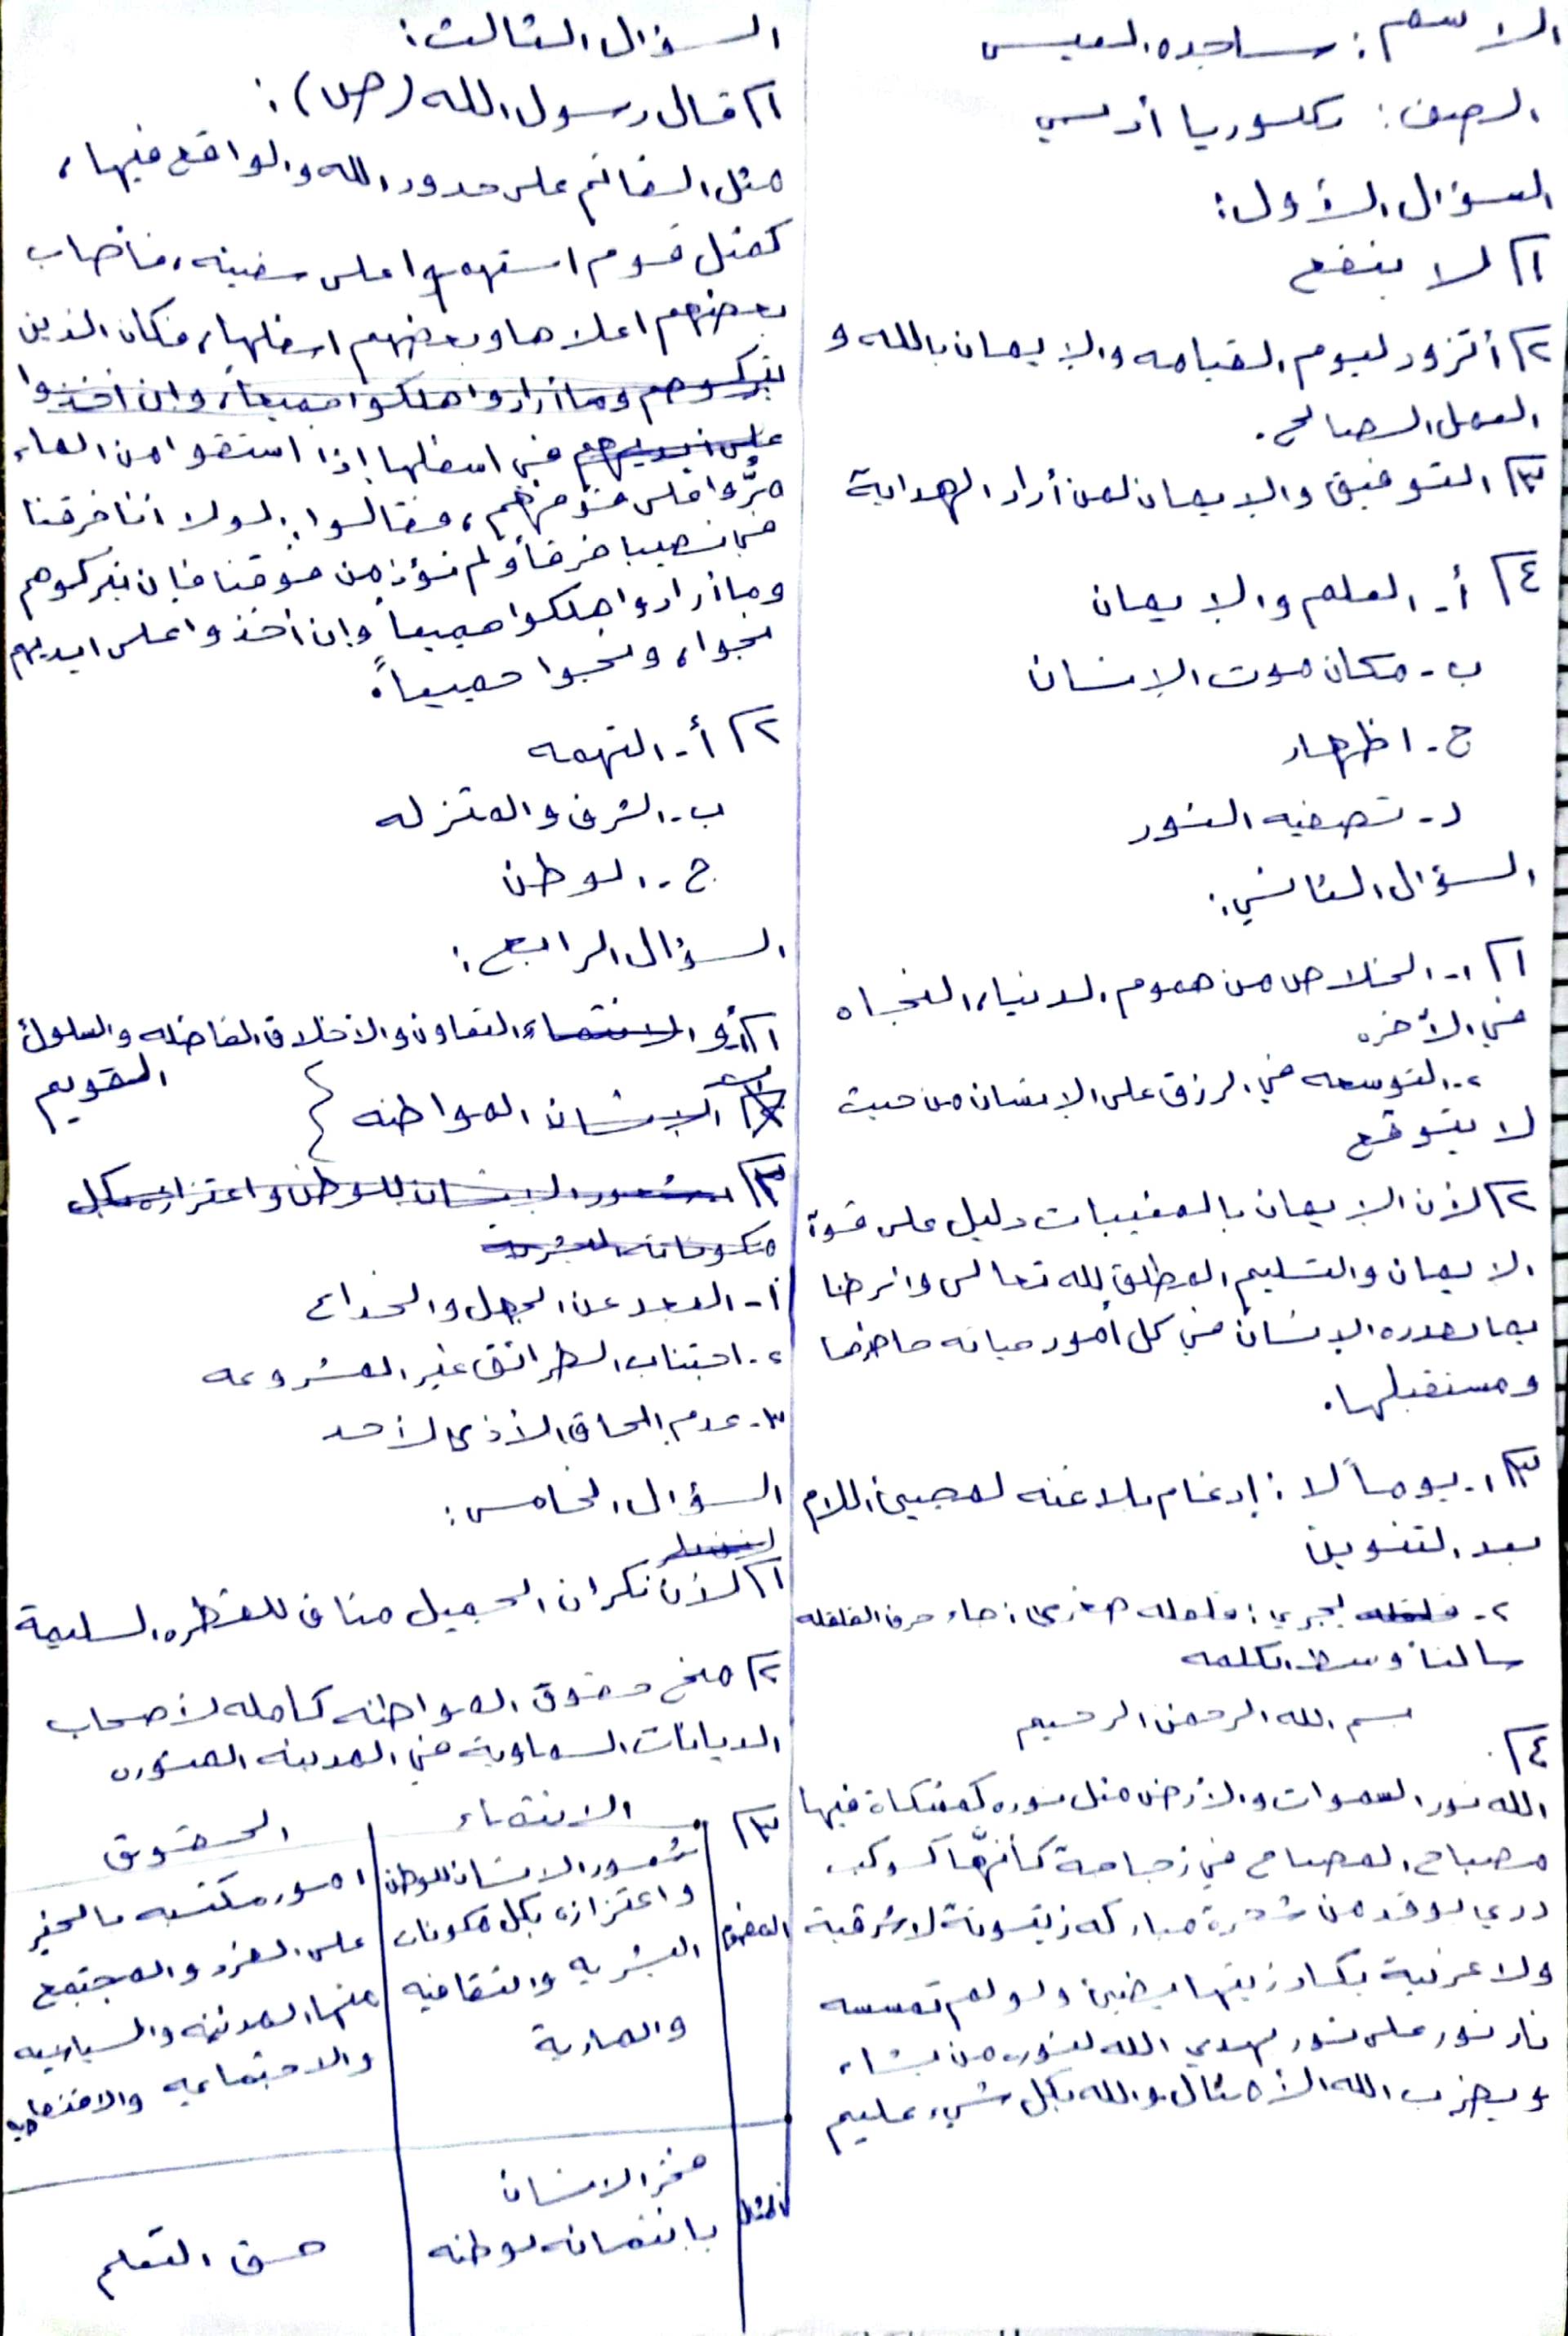 الاسم: ساجده العيسى
الصف: بكلوريا أدبي
السؤال الأول:
١) لا ينفع
٢) أتزود ليوم القيامه والإيمان بالله و
العمل الصالح.
٣) التوفيق والإيمان لمن أراد الهداية
٤) أ- العلم والإيمان
ب- مكان موت الإنسان
ج- اظهار
د- تصفيه النور
السؤال الثاني:
١) ١- الخلاص من هموم الدنيا، النجاه
في الأخره
٢- التوسعه في الرزق على الإنسان من حيث
لا يتوقع
٢) لأن الإيمان بالمغيبات دليل على قوة
الايمان والتسليم المطلق لله تعالى والرضا
بما يقدره الإنسان في كل أمور حياته حاضرها
ومستقبلها.
٣) ١- يوماً لا: إدغام بلا غنه لمجيئ اللام
بعد التنوين
٢- يجري: قلقله صغرى: جاء حرف القلقله
ساكناً وسط الكلمه
بسم الله الرحمن الرحيم
٤)
الله نور السموات والأرض مثل نوره كمشكاة فيها
مصباح المصباح في زجاجة كأنها كوكب
دري يوقد من شجرة مباركه زيتونة لا شرقية
ولا غربية يكاد زيتها يضيئ ولو لم تمسسه
نار نور على نور يهدي الله لنوره من يشاء
ويضرب الله الأمثال والله بكل شيء عليم
السؤال الثالث:
١) قال رسول الله (ص):
مثل القائم على حدود الله والواقع فيها،
كمثل قوم استهموا على سفينه، فأصاب
بعضهم اعلاها وبعضهم اسفلها، فكان الذين
يتركوهم وما أرادوا هلكوا جميعاً، وإن أخذوا
على أيديهم في اسفلها إذا استقوا من الماء
مرُّوا على فوقهم، فقالوا: لولا أنا خرقنا
في نصيبنا خرقاً ولم نؤذ من فوقنا فإن يتركوهم
وما أرادوا هلكوا جميعاً وإن أخذوا على ايديهم
نجوا، ونجوا جميعاً.
٢) أ- التهمه
ب- الشرف والمنزله
ج- الوطن
السؤال الرابع:
١) الانتماء التعاون والاخلاق الفاضله والسلوك
القويم
الإنسان المواطنه
٣) شعور الإنسان للوطن واعتزازه بكل
مكوناته البشرية
١- البعد عن الجهل والخداع
٢- اجتناب الطرائق غير المشروعه
٣- عدم إلحاق الأذى لأحد
السؤال الخامس:
١) لأن نكران الجميل مناف للفطره السليمة
٢) منح حقوق المواطنه كامله لأصحاب
الديانات السماوية في المدينه المنوره
٣)
الانتماء
الحقوق
المفهوم
شعور الانسان للوطن
واعتزازه بكل مكونات
البشريه والثقافيه
والمادية
امور مكتسبه بالخير
على الفرد والمجتمع
منها المدنيه والسياسيه
والاجتماعيه والاقتصاديه
مثال
فخر الانسان
بانتمائه لوطنه
حق التعلم